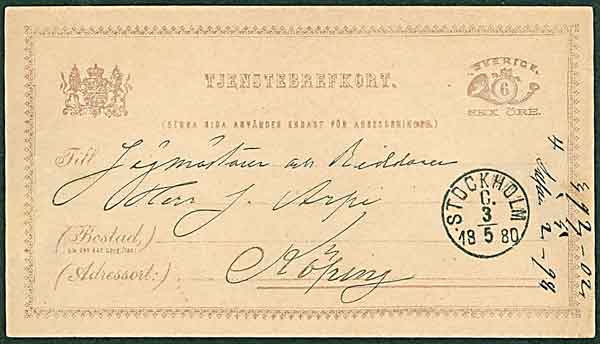 TJENSTEBREFKORT.
SVERIGE.
6
SEX ÖRE.
(DENNA SIDA ANVÄNDES ENDAST FÖR ADRESSSKRIFVNING.)
Till Jägmästaren och Riddaren
Herr J. Arpi
(Bostad,)
(Adressort:) Köping
STOCKHOLM
C.
3
5
18 80